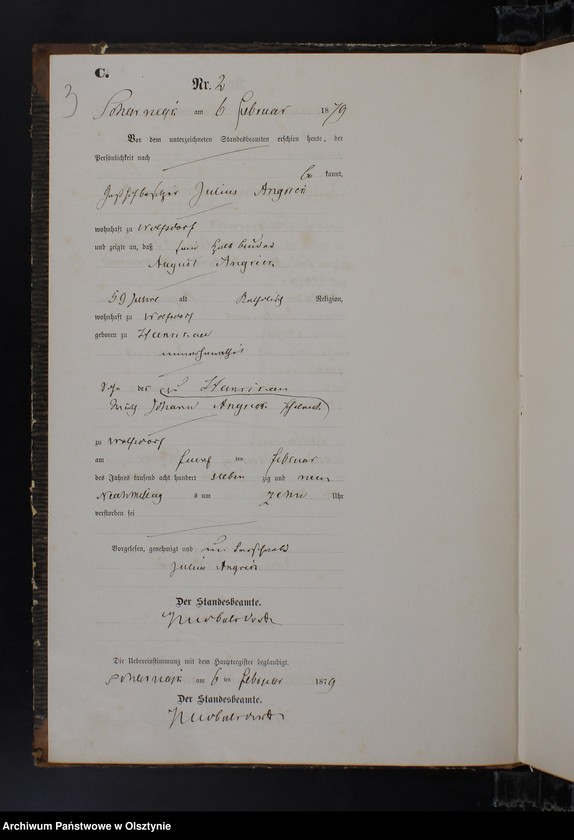 C.
Nr. 2
3
am 6 Februar 1879
Vor dem unterzeichneten Standesbeamten erschien heute, der
Persönlichkeit nach
be kannt,
Julius Angrick
wohnhaft zu Wolfsdorf
und zeigte an, daß sein Halb bruder
August Angrick
59 Jahre alt Katholisch Religion,
wohnhaft zu Wolfsdorf
geboren zu Heinrikau
unverheirathet
Sohn des zu Heinrikau
Johann Angrick
zu Wolfsdorf
am fuenf ten Februar
des Jahres tausend acht hundert sieben zig und neun
Nachmittag s um zehn Uhr
verstorben sei
Vorgelesen, genehmigt und unterschrieben
Julius Angrick
Der Standesbeamte.
Die Uebereinstimmung mit dem Hauptregister beglaubigt.
am 6 ten Februar 1879
Der Standesbeamte.
Archiwum Państwowe w Olsztynie